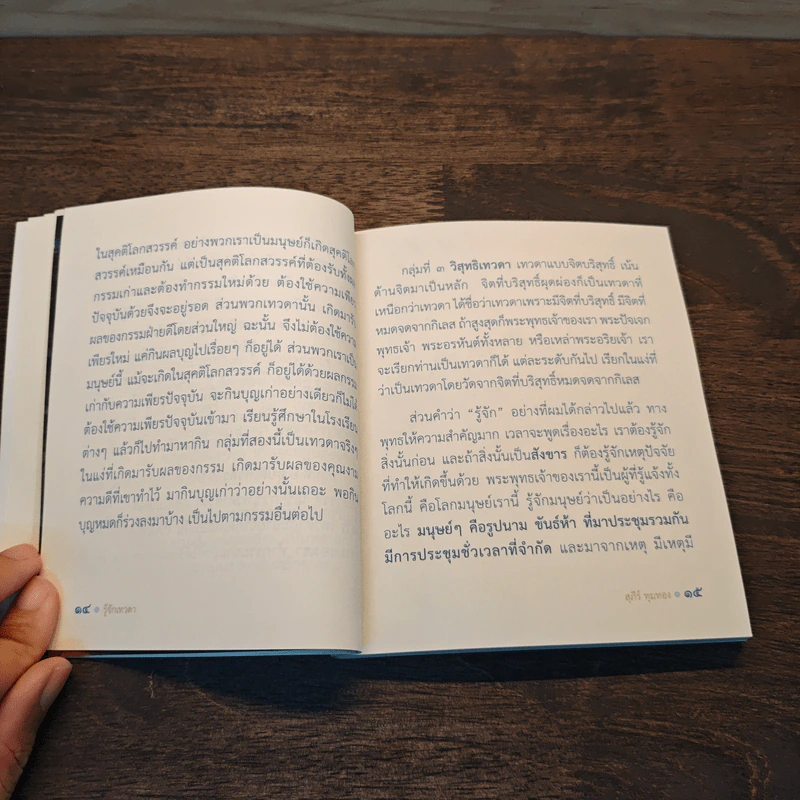 ในสุคติโลกสวรรค์ อย่างพวกเราเป็นมนุษย์ก็เกิดสุคติโลก
สวรรค์เหมือนกัน แต่เป็นสุคติโลกสวรรค์ที่ต้องรับทั้งผล
กรรมเก่าและต้องทำกรรมใหม่ด้วย ต้องใช้ความเพียร
ปัจจุบันด้วยจึงจะอยู่รอด ส่วนพวกเทวดานั้น เกิดมารับ
ผลของกรรมฝ่ายดีโดยส่วนใหญ่ ฉะนั้น จึงไม่ต้องใช้ความ
เพียรใหม่ แค่กินผลบุญไปเรื่อยๆ ก็อยู่ได้ ส่วนพวกเราเป็น
มนุษย์นี้ แม้จะเกิดในสุคติโลกสวรรค์ ก็อยู่ได้ด้วยผลกรรม
เก่ากับความเพียรปัจจุบัน จะกินบุญเก่าอย่างเดียวก็ไม่ได้
ต้องใช้ความเพียรปัจจุบันเข้ามา เรียนรู้ศึกษาในโรงเรียน
ต่างๆ แล้วก็ไปทำมาหากิน กลุ่มที่สองนี้เป็นเทวดาจริงๆ
ในแง่ที่เกิดมารับผลของกรรม เกิดมารับผลของคุณงาม
ความดีที่เขาทำไว้ มากินบุญเก่าว่าอย่างนั้นเถอะ พอกิน
บุญหมดก็ร่วงลงมาบ้าง เป็นไปตามกรรมอื่นต่อไป
๑๔ รู้จักเทวดา
กลุ่มที่ ๓ วิสุทธิเทวดา เทวดาแบบจิตบริสุทธิ์ เน้น
ด้านจิตมาเป็นหลัก จิตที่บริสุทธิ์ผุดผ่องก็เป็นเทวดาที่
เหนือกว่าเทวดา ได้ชื่อว่าเทวดาเพราะมีจิตที่บริสุทธิ์ มีจิตที่
หมดจดจากกิเลส ถ้าสูงสุดก็พระพุทธเจ้าของเรา พระปัจเจก
พุทธเจ้า พระอรหันต์ทั้งหลาย หรือเหล่าพระอริยเจ้า เรา
จะเรียกท่านเป็นเทวดาก็ได้ แต่ละระดับกันไป เรียกในแง่ที่
ว่าเป็นเทวดาโดยวัดจากจิตที่บริสุทธิ์หมดจดจากกิเลส
ส่วนคำว่า "รู้จัก" อย่างที่ผมได้กล่าวไปแล้ว ทาง
พุทธให้ความสำคัญมาก เวลาจะพูดเรื่องอะไร เราต้องรู้จัก
สิ่งนั้นก่อน และถ้าสิ่งนั้นเป็นสังขาร ก็ต้องรู้จักเหตุปัจจัย
ที่ทำให้เกิดขึ้นด้วย พระพุทธเจ้าของเรานี้เป็นผู้ที่รู้แจ้งทั้ง
โลกนี้ คือโลกมนุษย์เรานี้ รู้จักมนุษย์ว่าเป็นอย่างไร คือ
อะไร มนุษย์ๆ คือรูปนาม ขันธ์ห้า ที่มาประชุมรวมกัน
มีการประชุมชั่วเวลาที่จำกัด และมาจากเหตุ มีเหตุมี
สุภีร์ ทุมทอง ๑๕